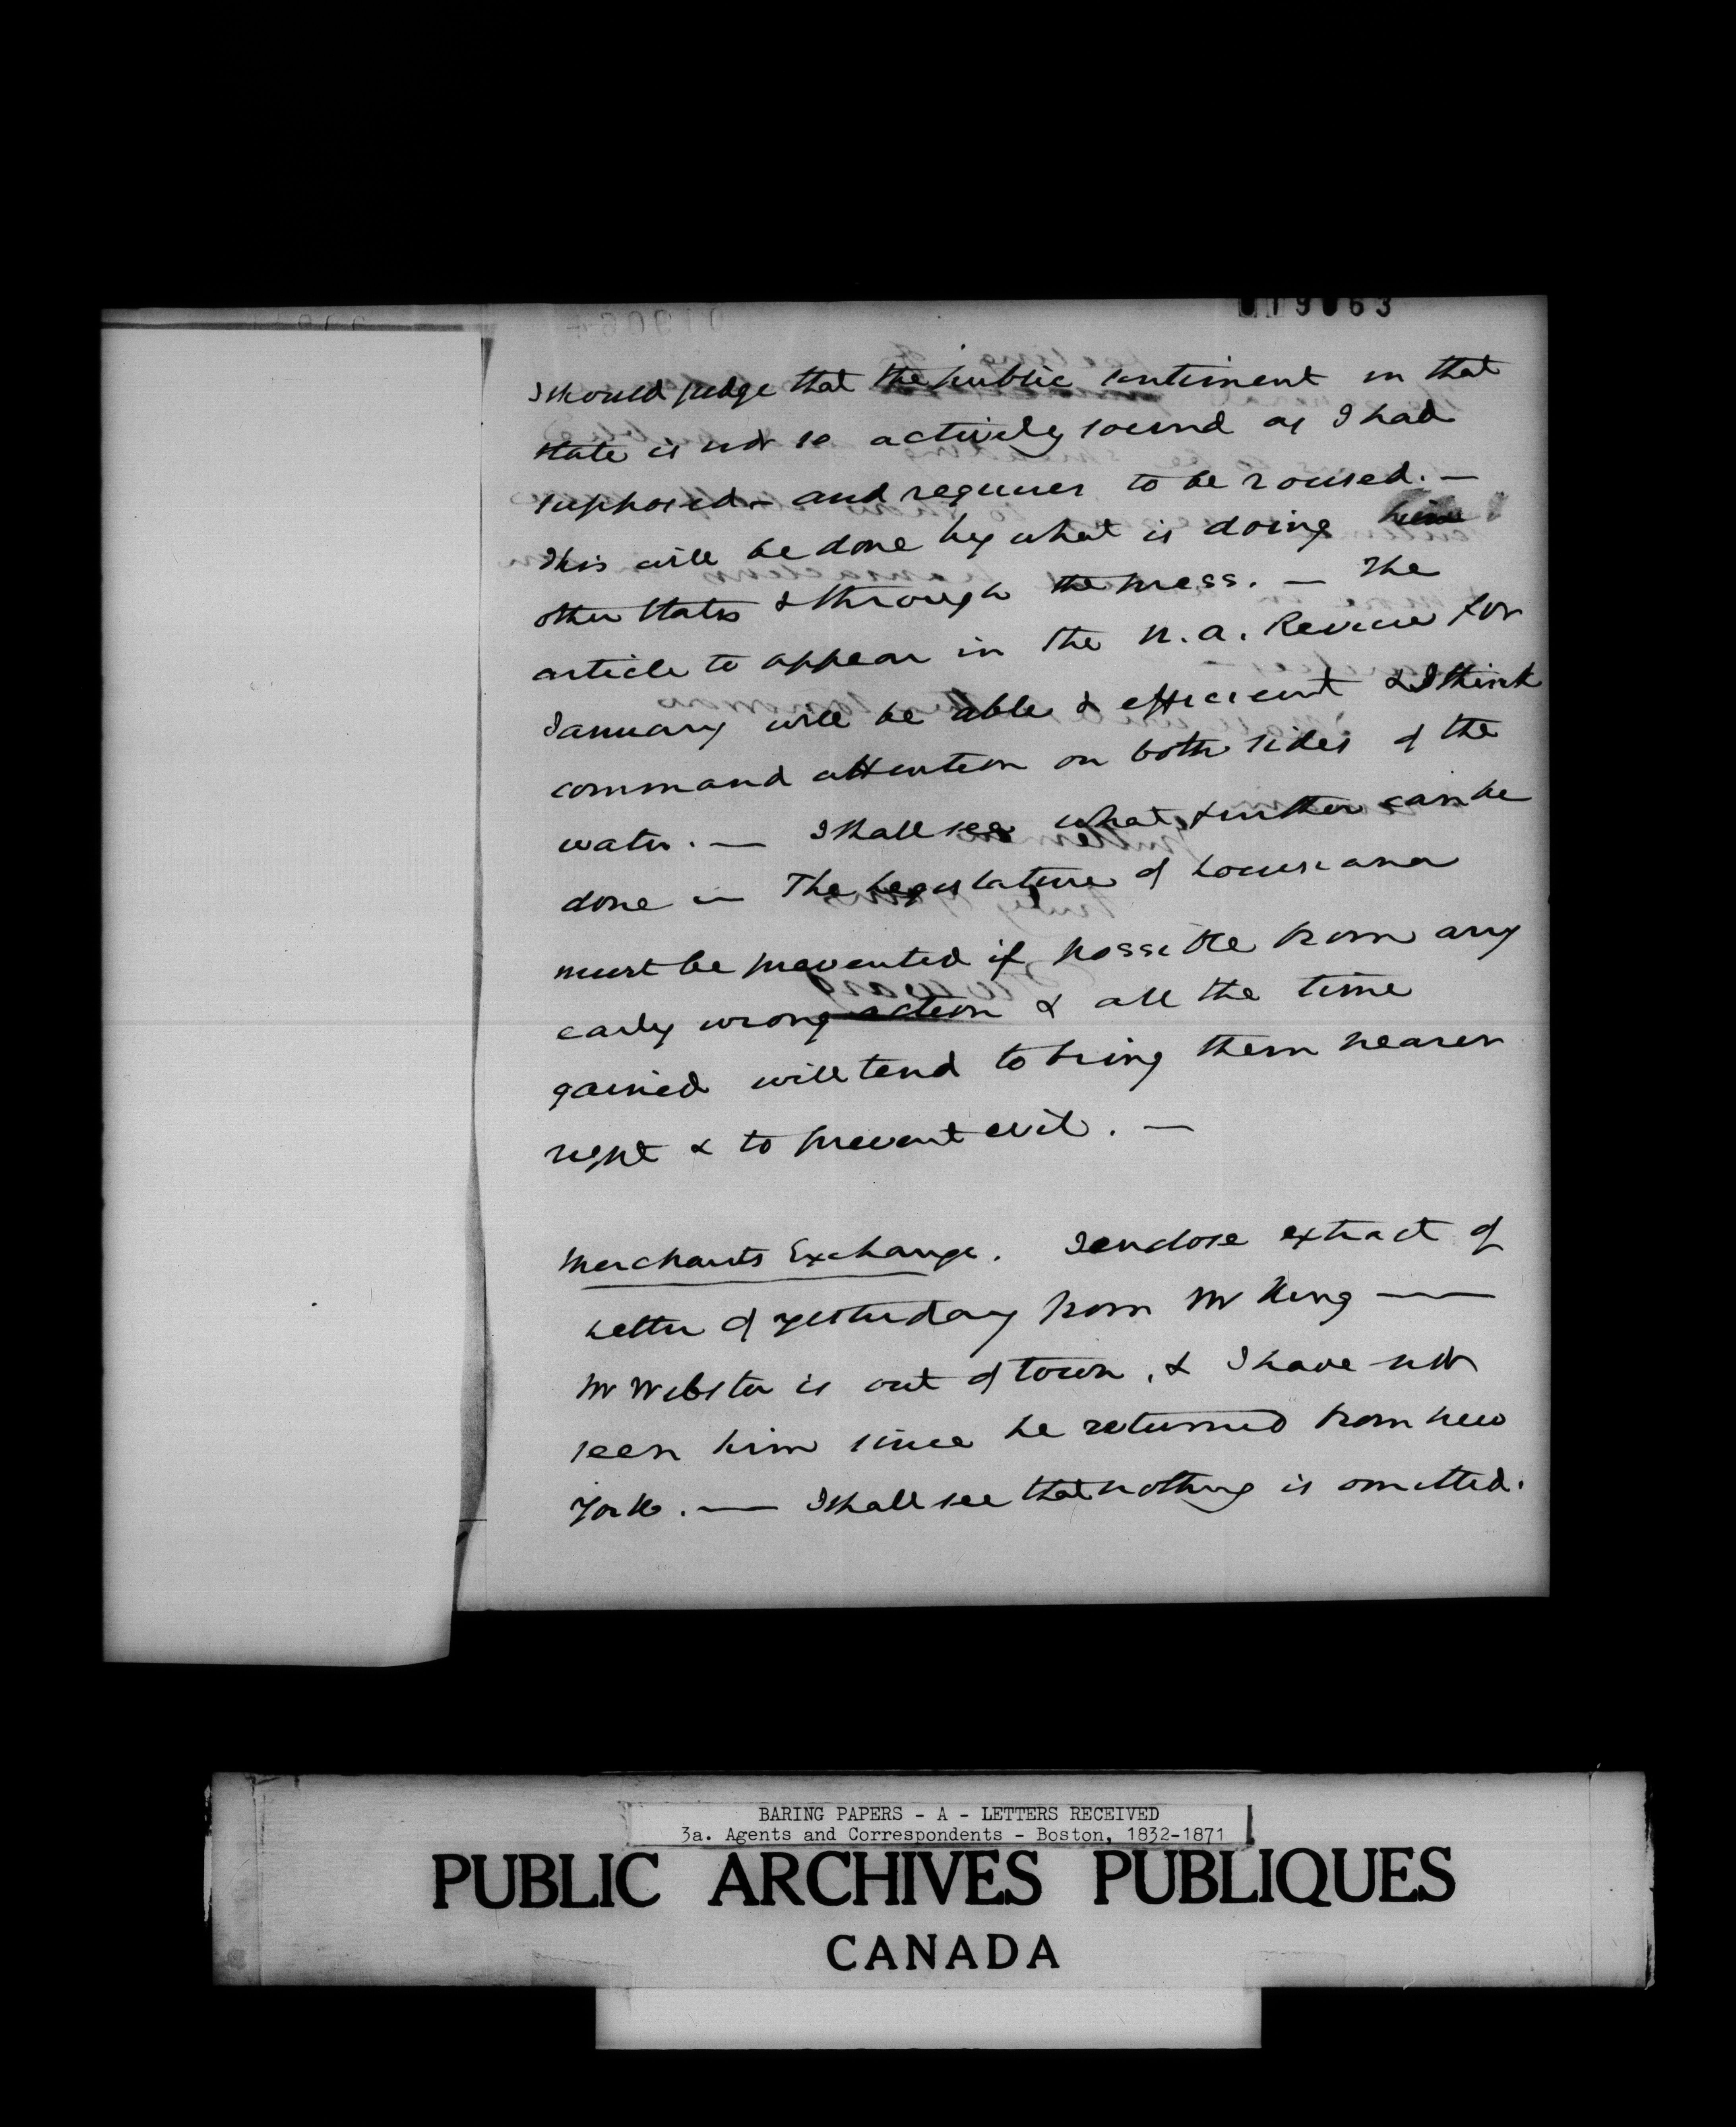 019063
I should judge that the public sentiment in that
State is not so actively sound as I had
supposed - and requires to be roused. -
This will be done by what is doing here
other States & through the press. - The
article to appear in the N. A. Review for
January will be able & efficient & I think
command attention on both sides of the
water. - I shall see what further can be
done - The Legislature of Louisiana
must be prevented if possible from any
early wrong action & all the time
gained will tend to bring them nearer
right & to prevent evil. -
Merchants Exchange. I enclose extract of
Letter of yesterday from Mr King -
Mr Webster is out of town, & I have not
seen him since he returned from New
York. - I shall see that nothing is omitted.
BARING PAPERS - A - LETTERS RECEIVED
3a. Agents and Correspondents - Boston, 1832-1871
PUBLIC ARCHIVES PUBLIQUES
CANADA